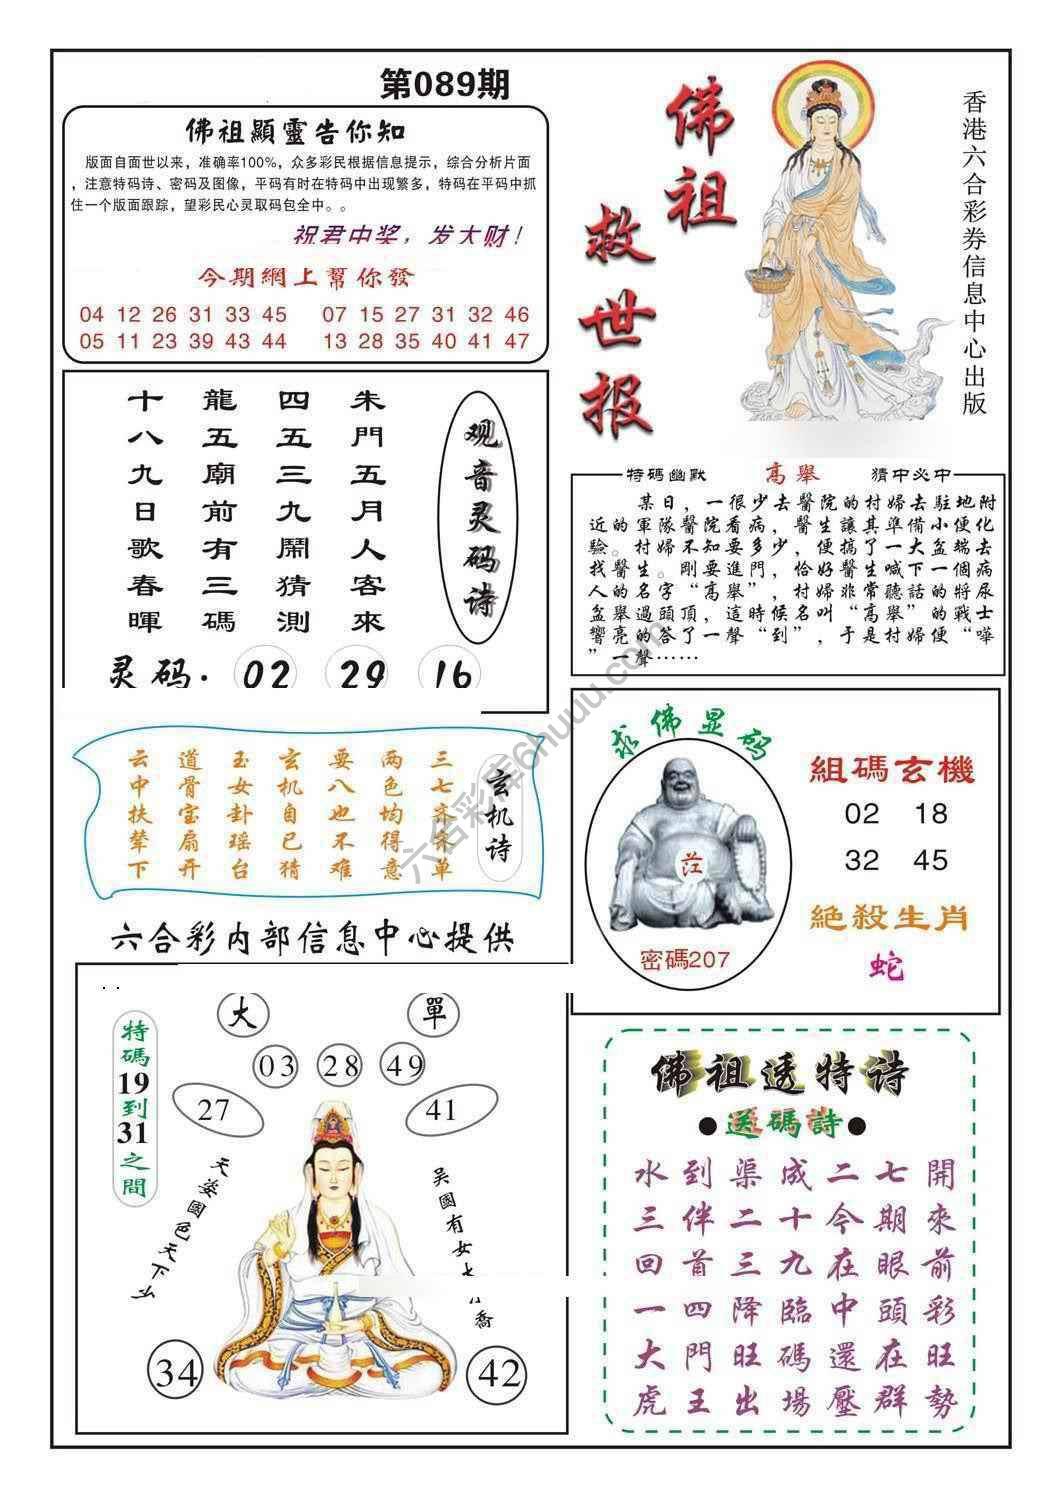 第089期
佛祖顯靈告你知
版面自面世以来，准确率100%，众多彩民根据信息提示，综合分析片面
，注意特码诗、密码及图像，平码有时在特码中出现繁多，特码在平码中抓
住一个版面跟踪，望彩民心灵取码包全中。。
祝君中奖，发大财！
今期網上幫你發
04 12 26 31 33 45 07 15 27 31 32 46
05 11 23 39 43 44 13 28 35 40 41 47
佛祖
救世报
香港六合彩券信息中心出版
观音灵码诗
朱門五月人客來
四五三九鬧猜測
龍五廟前有三碼
十八九日歌春暉
灵码. 02 29 16
特碼幽默 高舉 猜中必中
某日，一很少去醫院的村婦去駐地附
近的軍隊醫院看病，醫生讓其準備小便化
驗。村婦不知要多少，便搞了一大盆端去
找醫生。剛要進門，恰好醫生喊下一個病
人的名字“高舉”，村婦非常聽話的將尿
盆舉過頭頂，這時候名叫“高舉”的戰士
響亮的答了一聲“到”，于是村婦便“嘩
”一聲……
玄机诗
三七齐来单
两色均得意
要八也不难
玄机自已猜
玉女卦瑶台
道骨宝扇开
云中扶辇下
六合彩内部信息中心提供
求佛显码
密碼207
組碼玄機
02 18
32 45
絕殺生肖
蛇
大 單
03 28 49
27 41
特碼19到31之間
天姿國色天下少
吴國有女大小喬
34 42
佛祖透特诗
●送碼詩●
水到渠成二七開
三伴二十今期來
回首三九在眼前
一四降臨中頭彩
大門旺碼還在旺
虎王出場壓群勢
六合彩库6huuu.com